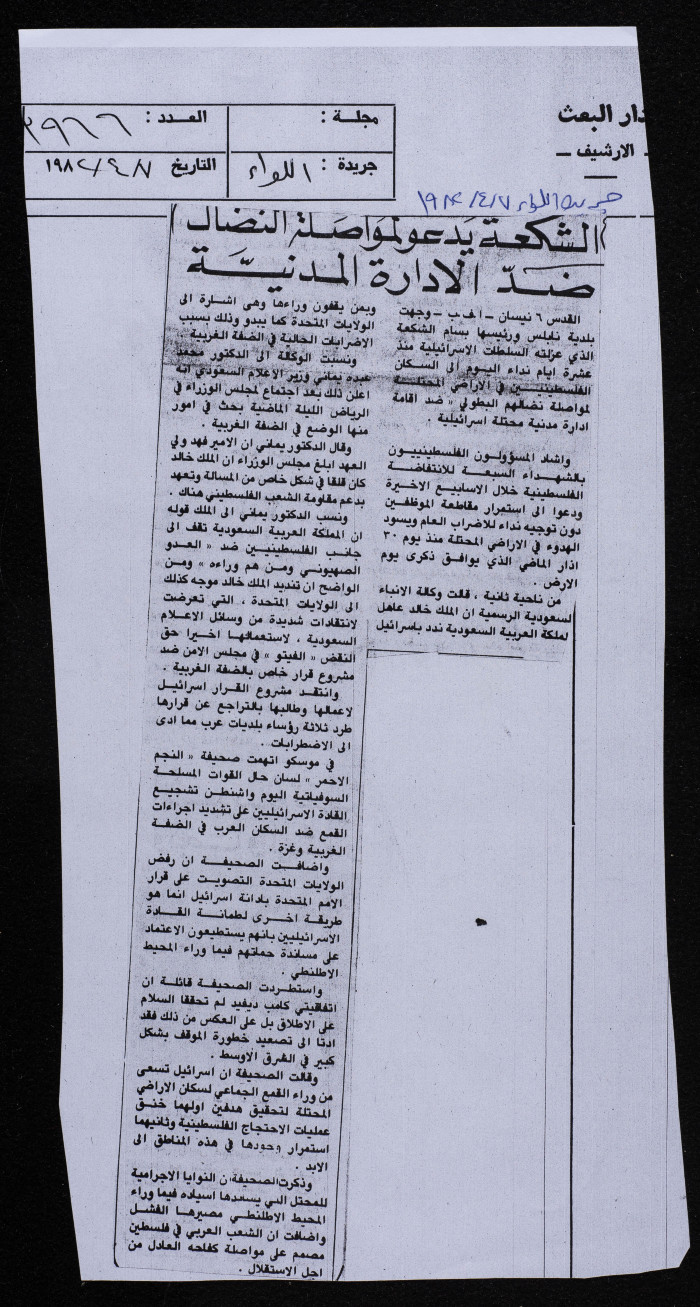 دار البعث
ـ الارشيف ـ
مجلة :
العدد : ٣٩٦٦
جريدة : اللواء
التاريخ ١٩٨٢/٤/٧
جريدة اللواء ١٩٨٢/٤/٧
الشكعة يدعو لمواصلة النضال
ضد الادارة المدنية
القدس ٦ نيسان ـ ا.ف.ب ـ وجهت
بلدية نابلس ورئيسها بسام الشكعة
الذي عزلته السلطات الاسرائيلية منذ
عشرة ايام نداء اليوم الى السكان
الفلسطينيين في الاراضي المحتلة
لمواصلة نضالهم البطولي « ضد اقامة
ادارة مدنية محتلة اسرائيلية .
واشاد المسؤولون الفلسطينيون
بالشهداء السبعة للانتفاضة
الفلسطينية خلال الاسابيع الاخيرة
ودعوا الى استمرار مقاطعة الموظفين
دون توجيه نداء للاضراب العام ويسود
الهدوء في الاراضي المحتلة منذ يوم ٣٠
اذار الماضي الذي يوافق ذكرى يوم
الارض .
من ناحية ثانية ، قالت وكالة الانباء
لسعودية الرسمية ان الملك خالد عاهل
لملكة العربية السعودية ندد باسرائيل
وبمن يقفون وراءها وهي اشارة الى
الولايات المتحدة كما يبدو وذلك بسبب
الاضرابات الحالية في الضفة الغربية
ونسبت الوكالة الى الدكتور محمد
عبده يماني وزير الاعلام السعودي انه
اعلن ذلك بعد اجتماع لمجلس الوزراء في
الرياض الليلة الماضية بحث في امور
منها الوضع في الضفة الغربية .
وقال الدكتور يماني ان الامير فهد ولي
العهد ابلغ مجلس الوزراء ان الملك خالد
كان قلقا في شكل خاص من المسالة وتعهد
بدعم مقاومة الشعب الفلسطيني هناك .
ونسب الدكتور يماني الى الملك قوله
ان المملكة العربية السعودية تقف الى
جانب الفلسطينيين ضد « العدو
الصهيوني ومن هم وراءه » ومن
الواضح ان تنديد الملك خالد موجه كذلك
الى الولايات المتحدة ، التي تعرضت
لانتقادات شديدة من وسائل الاعلام
السعودية ، لاستعمالها اخيرا حق
النقض « الفيتو » في مجلس الامن ضد
مشروع قرار خاص بالضفة الغربية .
وانتقد مشروع القرار اسرائيل
لاعمالها وطالبها بالتراجع عن قرارها
طرد ثلاثة رؤساء بلديات عرب مما ادى
الى الاضطرابات .
في موسكو اتهمت صحيفة « النجم
الاحمر » لسان حال القوات المسلحة
السوفياتية اليوم واشنطن تشجيع
القادة الاسرائيليين على تشديد اجراءات
القمع ضد السكان العرب في الضفة
الغربية وغزة .
واضافت الصحيفة ان رفض
الولايات المتحدة التصويت على قرار
الامم المتحدة بادانة اسرائيل انما هو
طريقة اخرى لطمانة القادة
الاسرائيليين بانهم يستطيعون الاعتماد
على مساندة حماتهم فيما وراء المحيط
الاطلنطي .
واستطردت الصحيفة قائلة ان
اتفاقيتي كامب ديفيد لم تحققا السلام
على الاطلاق بل على العكس من ذلك فقد
ادتا الى تصعيد خطورة الموقف بشكل
كبير في الشرق الاوسط .
وقالت الصحيفة ان اسرائيل تسعى
من وراء القمع الجماعي لسكان الاراضي
المحتلة لتحقيق هدفين اولهما خنق
عمليات الاحتجاج الفلسطينية وثانيهما
استمرار وجودها في هذه المناطق الى
الابد .
وذكرت الصحيفة ان النوايا الاجرامية
للمحتل التي يساندها اسياده فيما وراء
المحيط الاطلنطي مصيرها الفشل
واضافت ان الشعب العربي في فلسطين
مصمم على مواصلة كفاحه العادل من
اجل الاستقلال .